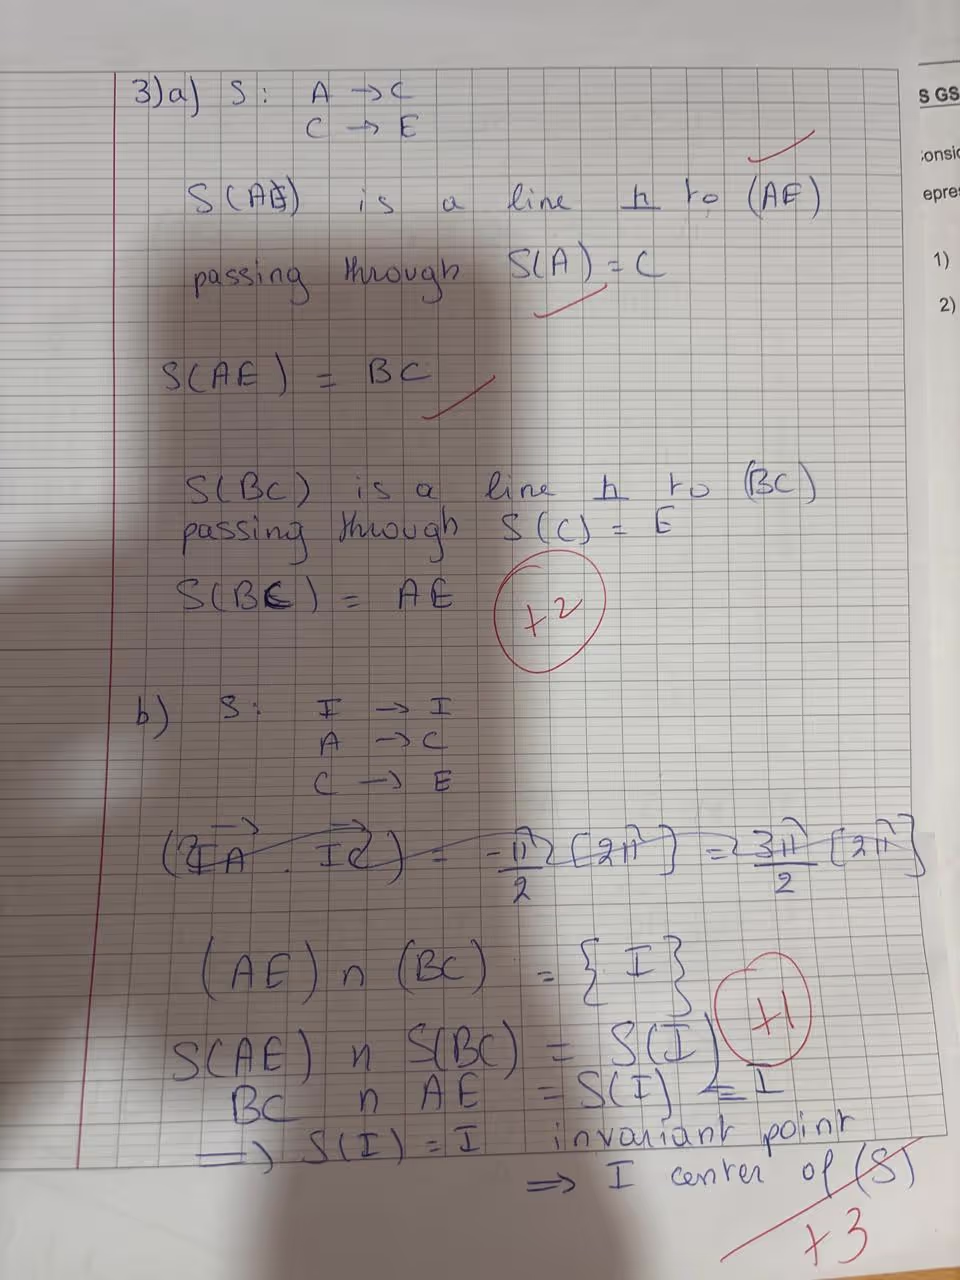 3)a) S: A → C
C → E
S(AE) is a line ⊥ to (AE)
passing through S(A) = C
S(AE) = BC
S(BC) is a line ⊥ to (BC)
passing through S(C) = E
S(BC) = AE
+2
b) S: I → I
A → C
C → E
(IA . IC) = -π/2 [2π] = 3π/2 [2π]
(AE) ∩ (BC) = { I }
+1
S(AE) ∩ S(BC) = S(I)
BC ∩ AE = S(I) = I
⇒ S(I) = I invariant point
⇒ I center of (S)
+3
S GS
epres
1)
2)